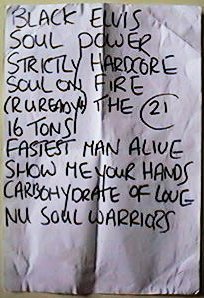 BLACK ELVIS
SOUL POWER
STRICTLY HARDCORE
SOUL ON FIRE
(RUREADY) THE 21
16 TONS
FASTEST MAN ALIVE
SHOW ME YOUR HANDS
CARBOHYDRATE OF LOVE
NU SOUL WARRIORS